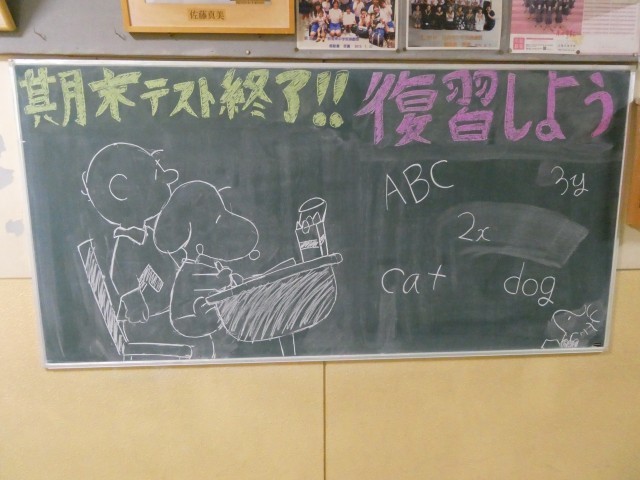 佐藤真美
期末テスト終了!!
復習しよう
ABC
3y
2x
cat
dog